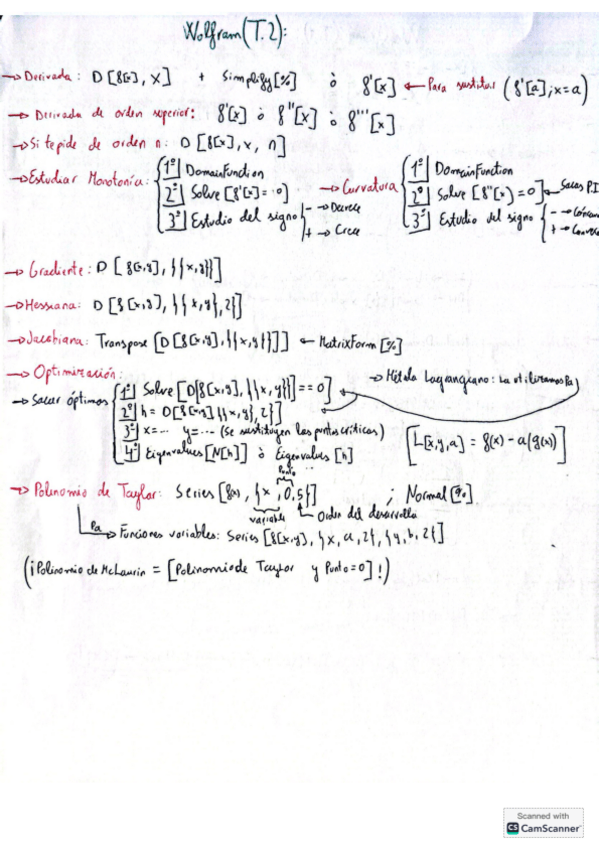 Wolfram (T.2):
→ Derivada: D[f[x], x] + Simplify[%] ó f'[x] ← Para sustituir (f'[a]; x=a)
→ Derivada de orden superior: f'[x] ó f''[x] ó f'''[x]
→ Si te pide de orden n: D[f[x], x, n]
→ Estudiar Monotonía: 1º DomainFunction
2º Solve[f'[x]= 0]
3º Estudio del signo - → Decrece
+ → Crece
→ Curvatura 1º DomainFunction
2º Solve[f''[x]=0] ← Sacas PI
3º Estudio del signo
→ Gradiente: D[f[x,y], {{x,y}}]
→ Hessiana: D[f[x,y], {{x,y}, 2}]
→ Jacobiana: Transpose[D[f[x,y], {{x,y}}]] ← MatrixForm[%]
→ Optimización:
→ Sacar óptimos 1º Solve[D[f[x,y], {{x,y}}] == 0]
2º h = D[f[x,y], {{x,y}, 2}]
3º x=... y=... (se sustituyen los puntos críticos)
4º Eigenvalues[N[h]] ó Eigenvalues[h]
→ Método Lagrangiano: La utilizamos pa
[L[x,y,a] = f(x) - a(g(x))]
→ Polinomio de Taylor: Series[f(x), {x, 0, 5}] ; Normal[%]
Punto
variable
Orden del desarrollo
Pa
→ Funciones variables: Series[f[x,y], {x, a, 2}, {y, b, 2}]
(¡Polinomio de McLaurin = [Polinomio de Taylor y Punto=0]!)
Scanned with
CS CamScanner